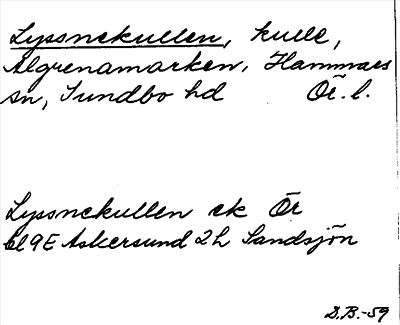 Lyssnekullen, kulle,
Algrenamarken, Hammars
sn, Sundbo hd Ör. l.
Lyssnekullen ek Ör
bl 9E Askersund 2h Sandsjön
D.B.-59